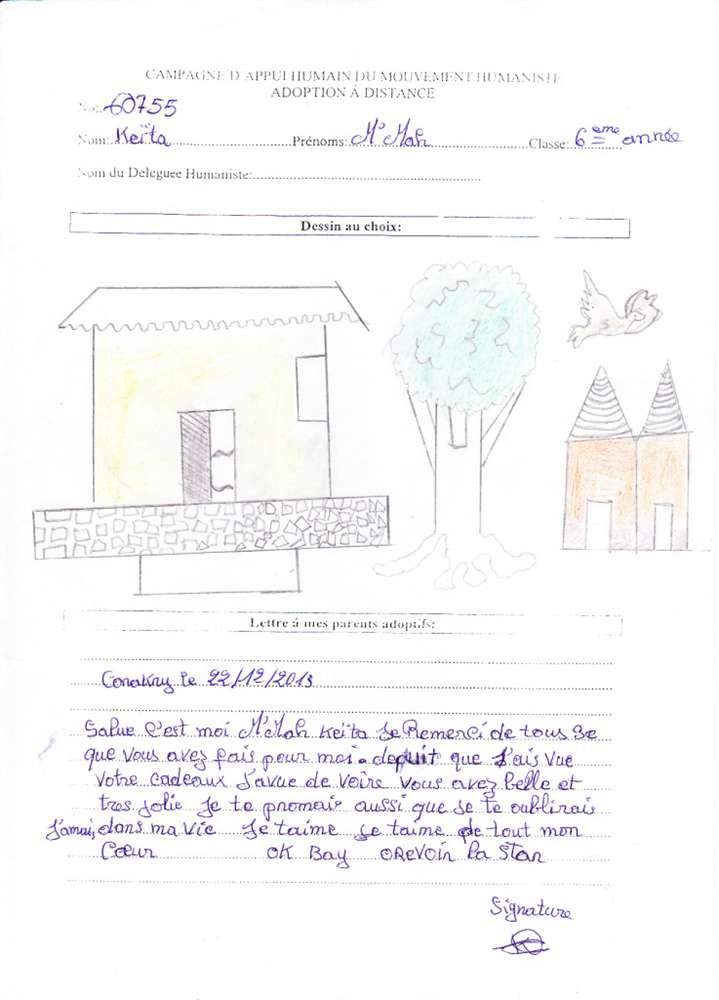 CAMPAGNE D'APPUI HUMAIN DU MOUVEMENT HUMANISTE
ADOPTION Á DISTANCE
No:.60755
Nom:.Keïta Prénoms: M'Mah Classe: 6eme année
Nom du Deleguee Humaniste:
Dessin au choix:
Lettre á mes parents adoptifs:
Conakry le 22/12/2013
Salue C'est moi M'Mah Keïta Je Remerci de tous se
que vous avez fais pour moi. depuit que J'ais vue
votre cadeaux J'avue de voire vous avez belle et
tres jolie Je te promais aussi que Je te oublirais
J'amais dans ma vie Je t'aime Je taime de tout mon
Cœur OK Bay OREVOIR la Star
Signature